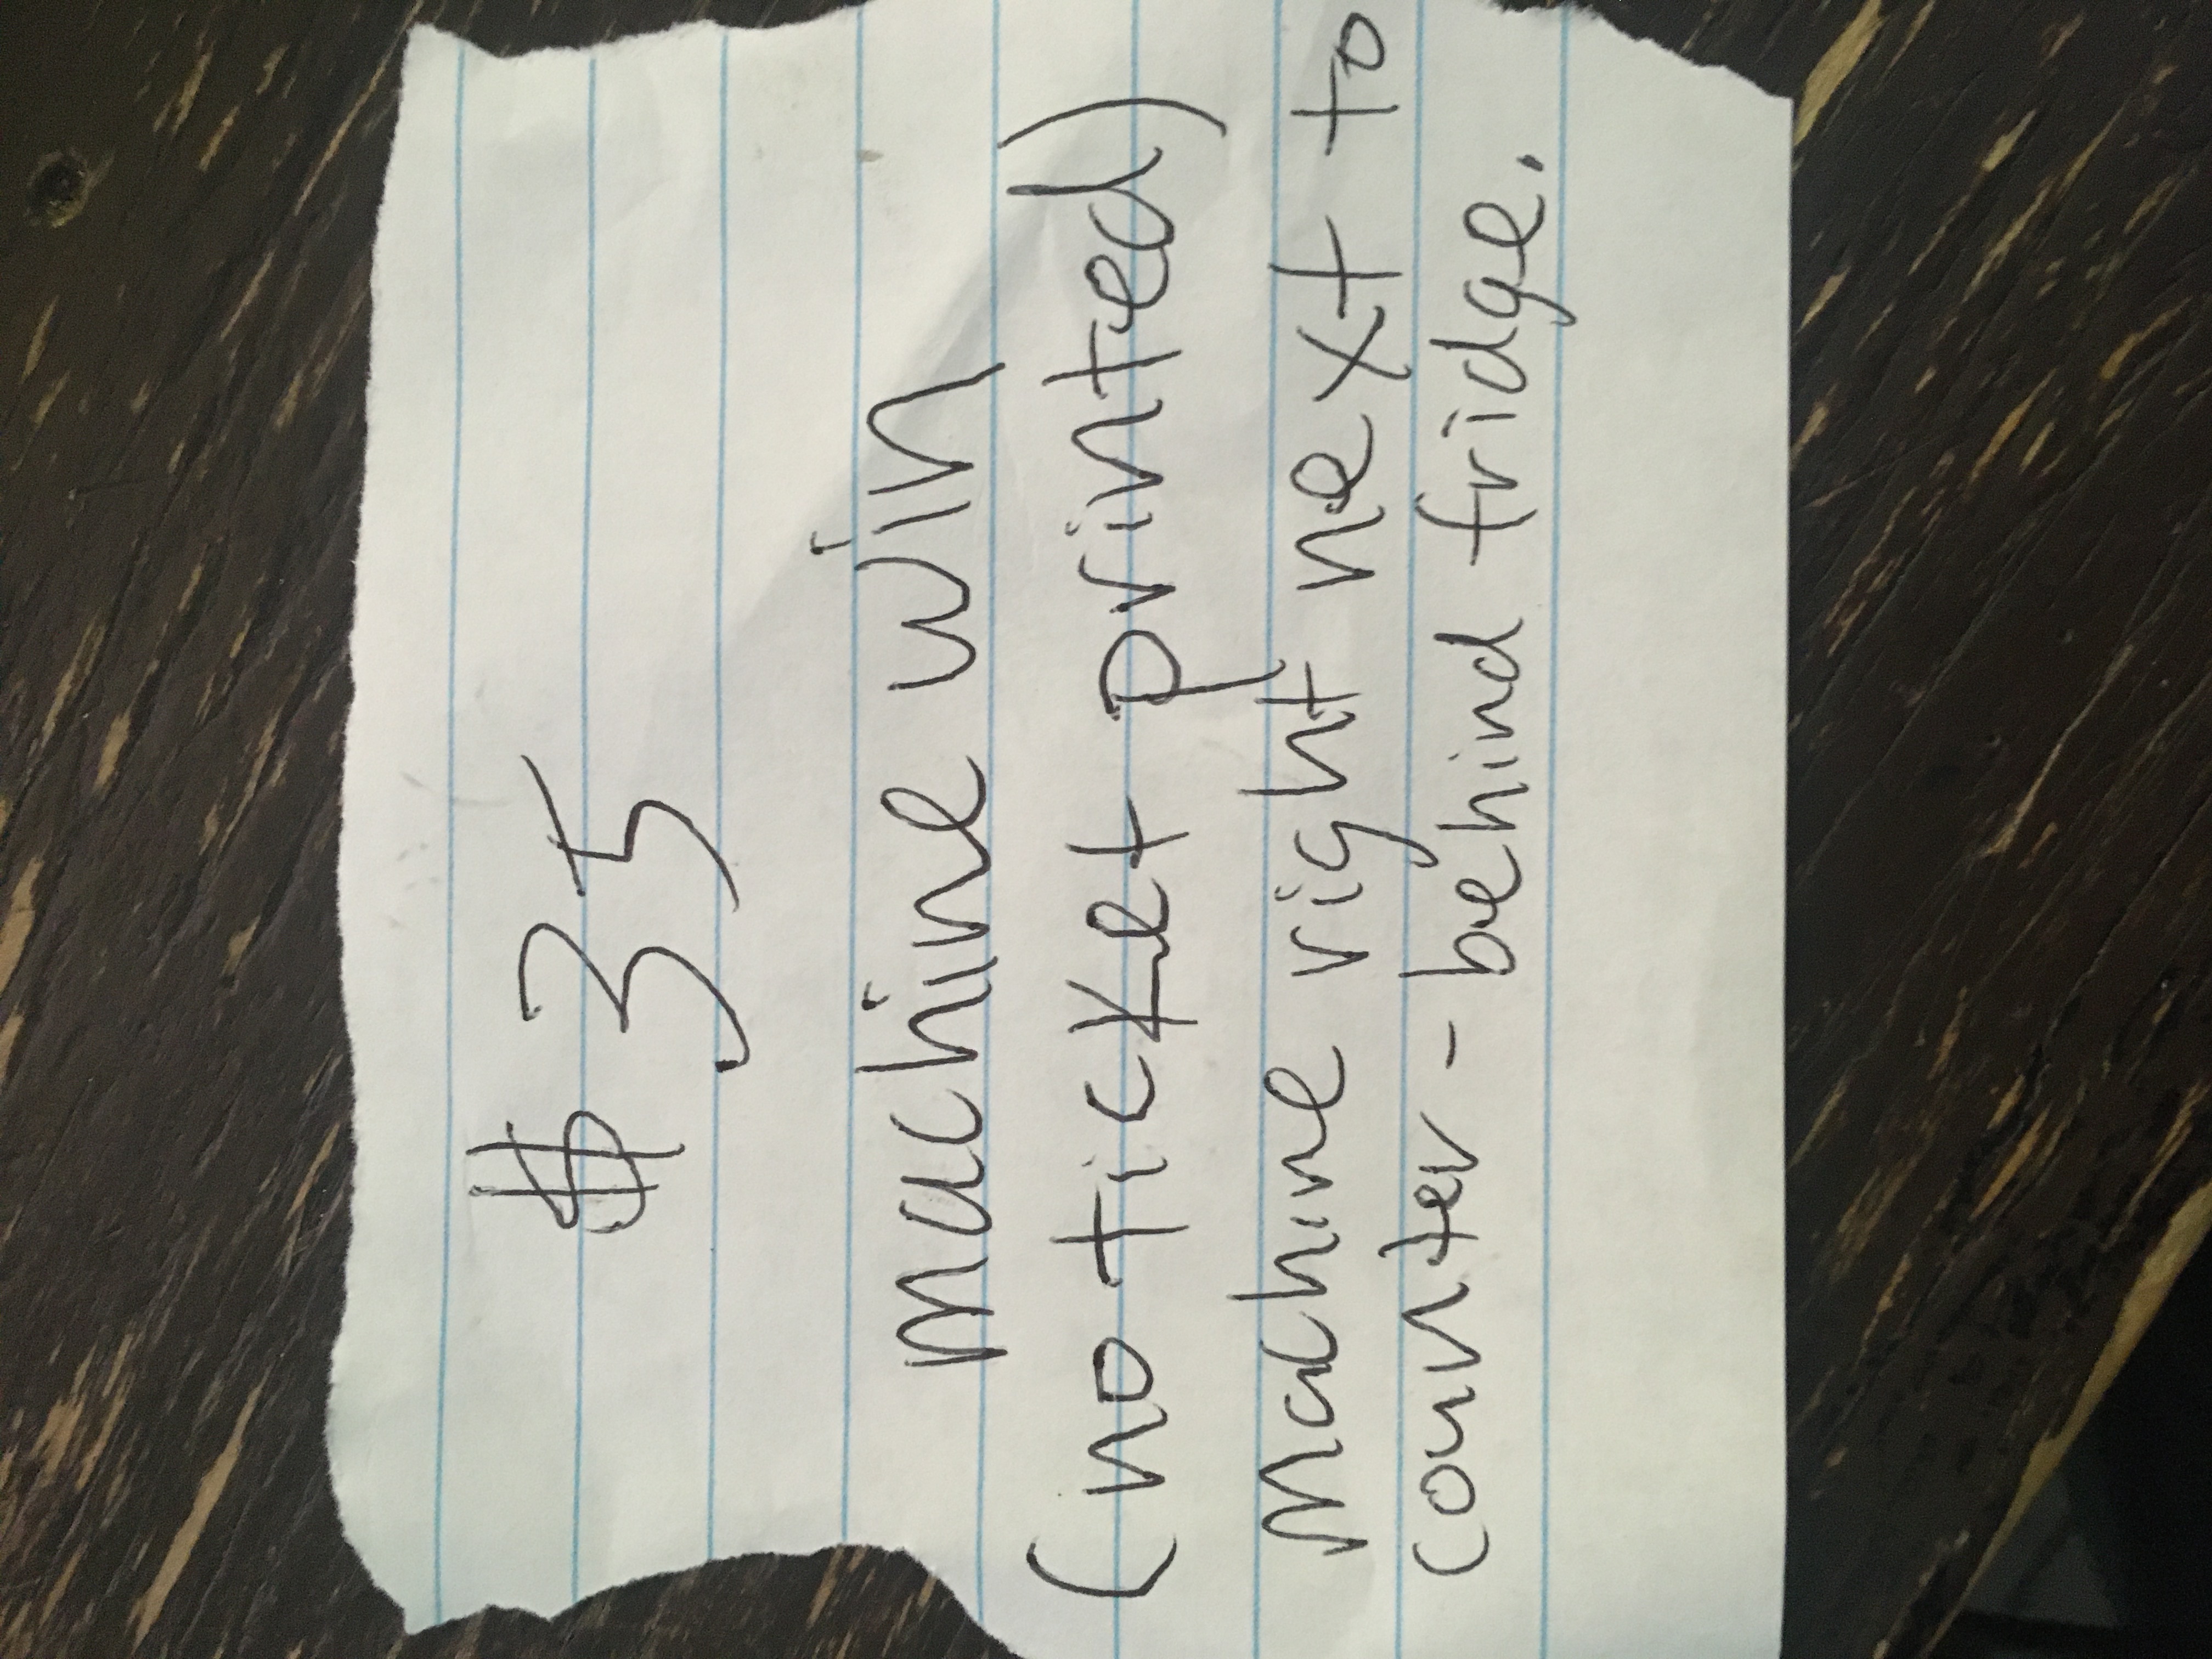 $35
machine win
(no ticket printed)
machine right next to
counter - behind fridge.